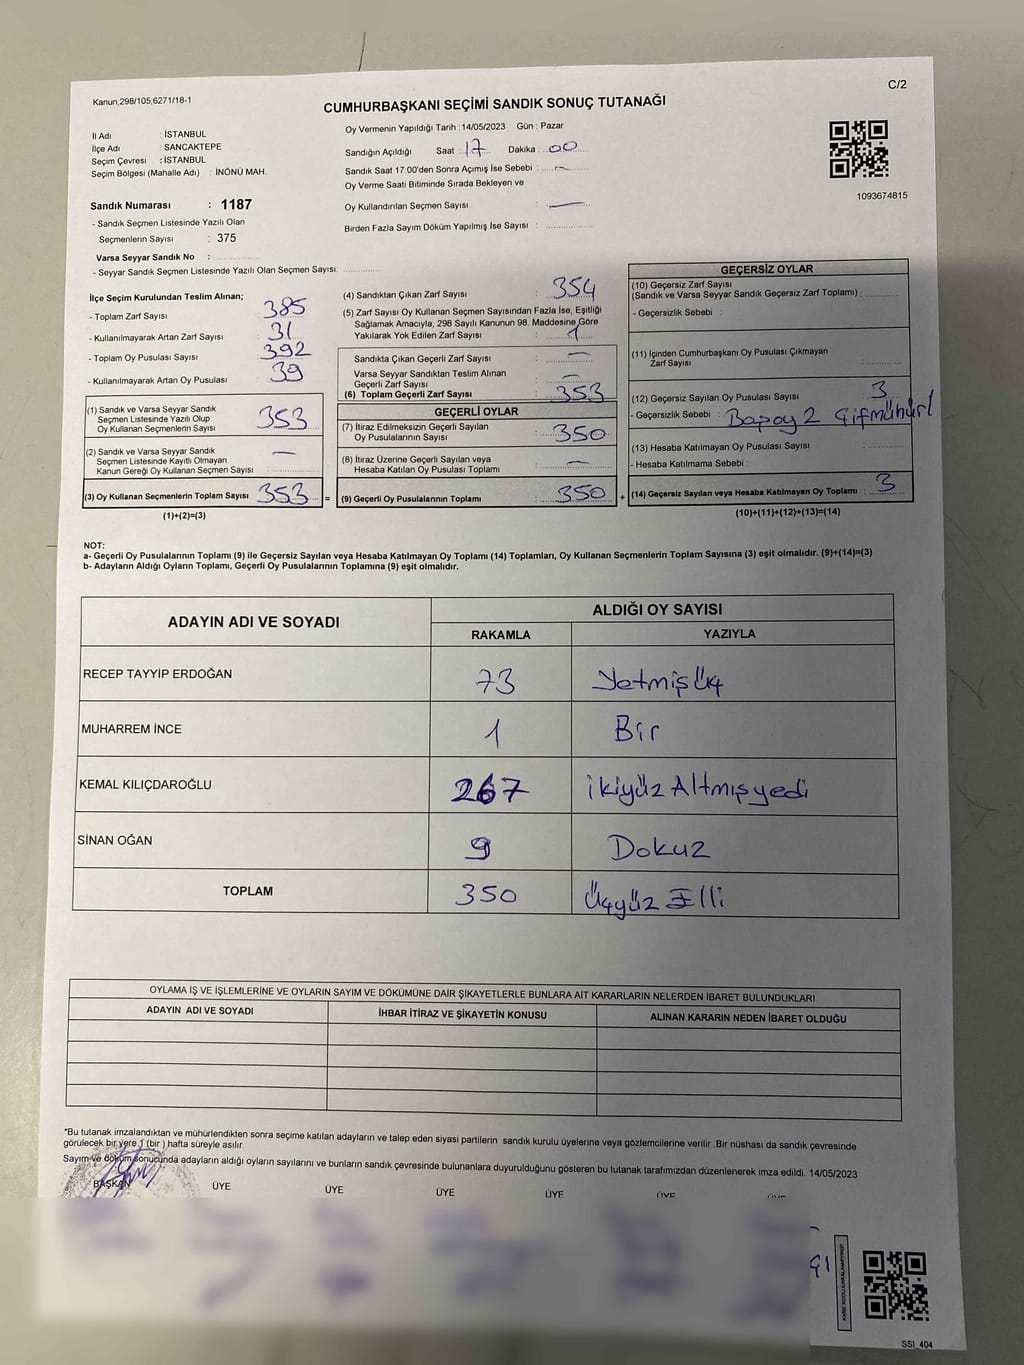 Kanun;298/105;6271/18-1
C/2
CUMHURBAŞKANI SEÇİMİ SANDIK SONUÇ TUTANAĞI
İl Adı : İSTANBUL
İlçe Adı : SANCAKTEPE
Seçim Çevresi : İSTANBUL
Seçim Bölgesi (Mahalle Adı) : İNÖNÜ MAH.
Sandık Numarası : 1187
- Sandık Seçmen Listesinde Yazılı Olan
Seçmenlerin Sayısı : 375
Varsa Seyyar Sandık No :
- Seyyar Sandık Seçmen Listesinde Yazılı Olan Seçmen Sayısı:
Oy Vermenin Yapıldığı Tarih : 14/05/2023 Gün : Pazar
Sandığın Açıldığı Saat : 17 Dakika : 00
Sandık Saat 17:00'den Sonra Açımış İse Sebebi : -
Oy Verme Saati Bitiminde Sırada Bekleyen ve
Oy Kullandırılan Seçmen Sayısı : -
Birden Fazla Sayım Döküm Yapılmış İse Sayısı :
1093674815
İlçe Seçim Kurulundan Teslim Alınan;
- Toplam Zarf Sayısı : 385
- Kullanılmayarak Artan Zarf Sayısı : 31
- Toplam Oy Pusulası Sayısı : 392
- Kullanılmayarak Artan Oy Pusulası : 39
(1) Sandık ve Varsa Seyyar Sandık
Seçmen Listesinde Yazılı Olup
Oy Kullanan Seçmenlerin Sayısı : 353
(2) Sandık ve Varsa Seyyar Sandık
Seçmen Listesinde Kayıtlı Olmayan
Kanun Gereği Oy Kullanan Seçmen Sayısı : -
(3) Oy Kullanan Seçmenlerin Toplam Sayısı : 353 =
(1)+(2)=(3)
(4) Sandıktan Çıkan Zarf Sayısı : 354
(5) Zarf Sayısı Oy Kullanan Seçmen Sayısından Fazla İse, Eşitliği
Sağlamak Amacıyla, 298 Sayılı Kanunun 98. Maddesine Göre
Yakılarak Yok Edilen Zarf Sayısı : 1
Sandıkta Çıkan Geçerli Zarf Sayısı : -
Varsa Seyyar Sandıktan Teslim Alınan
Geçerli Zarf Sayısı : -
(6) Toplam Geçerli Zarf Sayısı : 353
GEÇERLİ OYLAR
(7) İtiraz Edilmeksizin Geçerli Sayılan
Oy Pusulalarının Sayısı : 350
(8) İtiraz Üzerine Geçerli Sayılan veya
Hesaba Katılan Oy Pusulası Toplamı : -
(9) Geçerli Oy Pusulalarının Toplamı : 350 +
GEÇERSİZ OYLAR
(10) Geçersiz Zarf Sayısı
(Sandık ve Varsa Seyyar Sandık Geçersiz Zarf Toplamı) :
- Geçersizlik Sebebi :
(11) İçinden Cumhurbaşkanı Oy Pusulası Çıkmayan
Zarf Sayısı :
(12) Geçersiz Sayılan Oy Pusulası Sayısı : 3
- Geçersizlik Sebebi : 2
(13) Hesaba Katılmayan Oy Pusulası Sayısı :
- Hesaba Katılmama Sebebi :
(14) Geçersiz Sayılan veya Hesaba Katılmayan Oy Toplamı : 3
(10)+(11)+(12)+(13)=(14)
NOT:
a- Geçerli Oy Pusulalarının Toplamı (9) ile Geçersiz Sayılan veya Hesaba Katılmayan Oy Toplamı (14) Toplamları, Oy Kullanan Seçmenlerin Toplam Sayısına (3) eşit olmalıdır. (9)+(14)=(3)
b- Adayların Aldığı Oyların Toplamı, Geçerli Oy Pusulalarının Toplamına (9) eşit olmalıdır.
ADAYIN ADI VE SOYADI ALDIĞI OY SAYISI
RAKAMLA YAZIYLA
RECEP TAYYİP ERDOĞAN 73 Yetmişüç
MUHARREM İNCE 1 Bir
KEMAL KILIÇDAROĞLU 267 ikiyüz Altmışyedi
SİNAN OĞAN 9 Dokuz
TOPLAM 350 Üçyüz Elli
OYLAMA İŞ VE İŞLEMLERİNE VE OYLARIN SAYIM VE DÖKÜMÜNE DAİR ŞİKAYETLERLE BUNLARA AİT KARARLARIN NELERDEN İBARET BULUNDUKLARI
ADAYIN ADI VE SOYADI İHBAR İTİRAZ VE ŞİKAYETİN KONUSU ALINAN KARARIN NEDEN İBARET OLDUĞU
*Bu tutanak imzalandıktan ve mühürlendikten sonra seçime katılan adayların ve talep eden siyasi partilerin sandık kurulu üyelerine veya gözlemcilerine verilir .Bir nüshası da sandık çevresinde
görülecek bir yere 1 (bir ) hafta süreyle asılır.
Sayım ve döküm sonucunda adayların aldığı oyların sayılarını ve bunların sandık çevresinde bulunanlara duyurulduğunu gösteren bu tutanak tarafımızdan düzenlenerek imza edildi. 14/05/2023
BAŞKAN ÜYE ÜYE ÜYE ÜYE ÜYE
KARE KODU KARALAMAYINIZ!
SSI_404